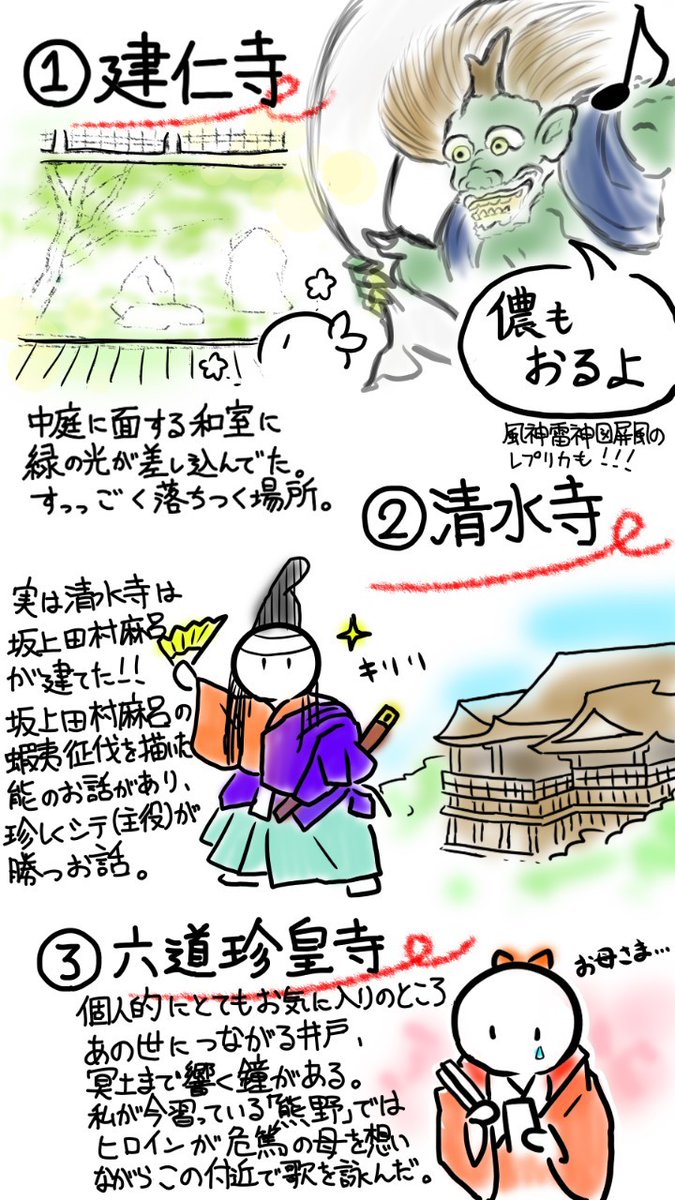 ①建仁寺
儂も
おるよ
風神雷神図屏風の
レプリカも!!!
中庭に面する和室に
緑の光が差し込んでた。
すっっごく落ちつく場所。
②清水寺
実は清水寺は
坂上田村麻呂
が建てた!!
坂上田村麻呂の
蝦夷征伐を描いた
能のお話があり、
珍しくシテ(主役)が
勝つお話。
キリリ
③六道珍皇寺
お母さま…
個人的にとてもお気に入りのところ
あの世につながる井戸、
冥土まで響く鐘がある。
私が今習っている「熊野」では
ヒロインが危篤の母を想い
ながらこの付近で歌を詠んだ。